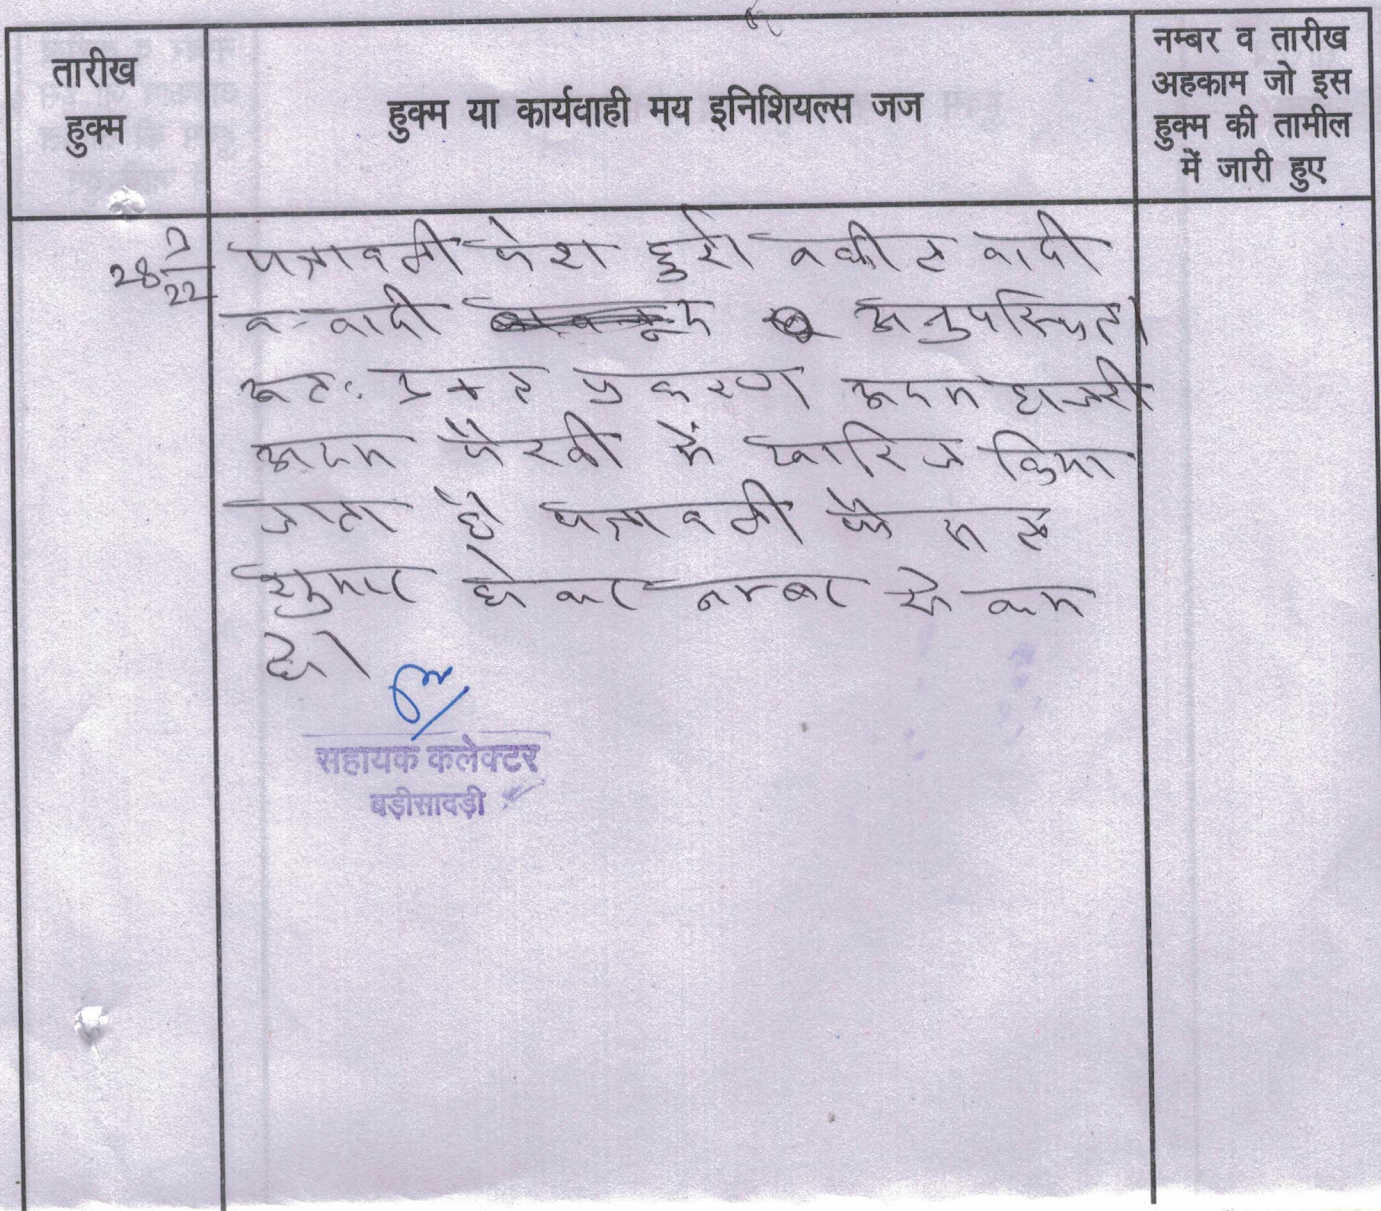 तारीख
हुक्म
हुक्म या कार्यवाही मय इनिशियल्स जज
नम्बर व तारीख
अहकाम जो इस
हुक्म की तामील
में जारी हुए
28/7/22
पत्रावली पेश हुई। वकील वादी
व वादी अनुपस्थित।
अतः प्रकरण अदम हाजरी
अदम पैरवी में खारिज किया
जाता है पत्रावली फैसल
शुमार होकर नम्बर से कम
हो।
सहायक कलेक्टर
बड़ीसादड़ी